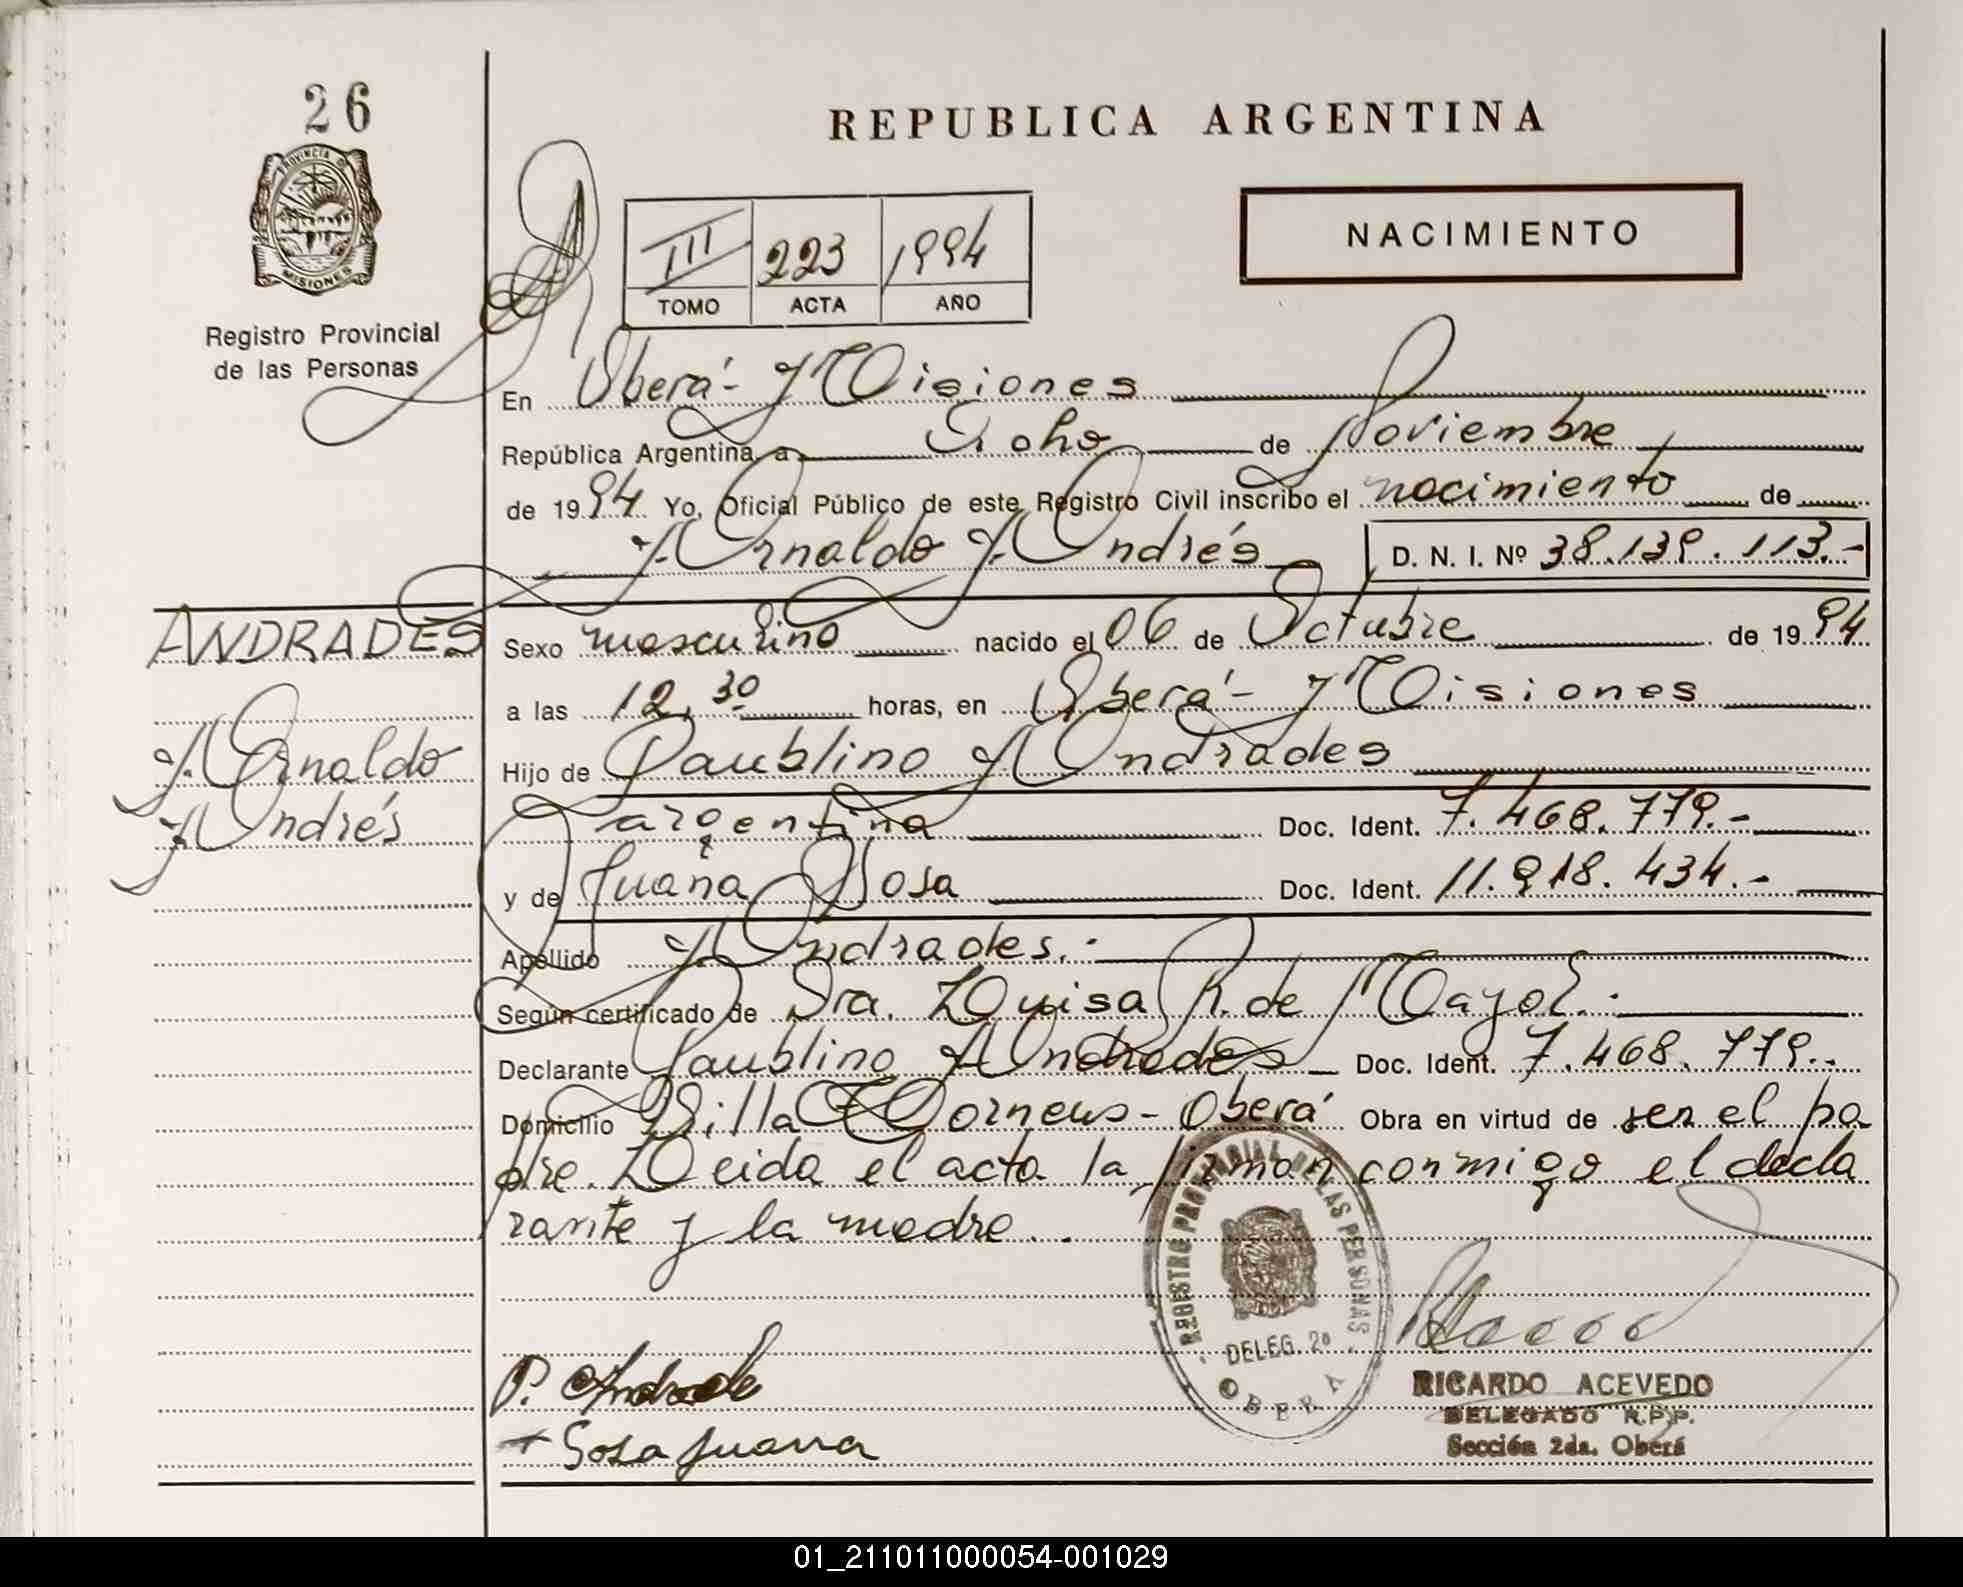 26
REPUBLICA ARGENTINA
PROVINCIA DE
MISIONES
Registro Provincial
de las Personas
III 223 1994
TOMO ACTA AÑO
NACIMIENTO
En Oberá - Misiones
República Argentina, a Ocho de Noviembre
de 1994 Yo, Oficial Público de este Registro Civil inscribo el nacimiento de
Arnaldo Andrés D. N. I. Nº 38.139.113.-
ANDRADES
Arnaldo
Andrés
Sexo masculino nacido el 06 de Octubre de 1994
a las 12,30 horas, en Oberá - Misiones
Hijo de Paublino Andrades
argentina Doc. Ident. 7.468.779.-
y de Juana Sosa Doc. Ident. 11.918.434.-
Apellido Andrades.-
Según certificado de Dra. Luisa R. de Mayol.-
Declarante Paublino Andrades Doc. Ident. 7.468.779.-
Domicilio Villa Torneus - Oberá Obra en virtud de ser el pa
dre. Leida el acta la firman conmigo el decla
rante y la madre..
REGISTRO PROVINCIAL DE LAS PERSONAS
DELEG. 2a
OBERA
P. Andrade
Sosa Juana
RICARDO ACEVEDO
DELEGADO R.P.P.
Sección 2da. Oberá
01_211011000054-001029